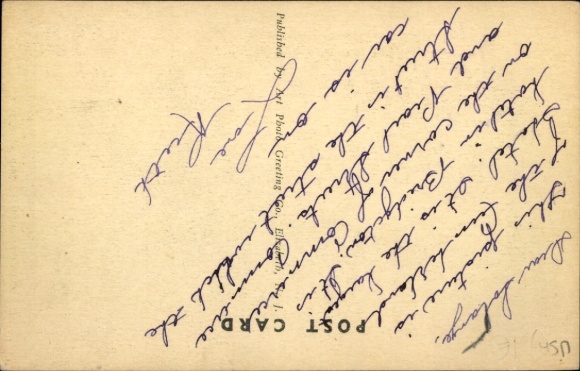 POST CARD
Published by Art Photo Greeting Co., Elizabeth, N. J.
Dear Solange,
This picture is
of the Cumberland
Hotel. It is the larges
hotel in Bridgeton. It is
on the corner of Commerce
and Pearl Streets. Commerce
Street is the street which the
car is on.
Love
Ruth
USA